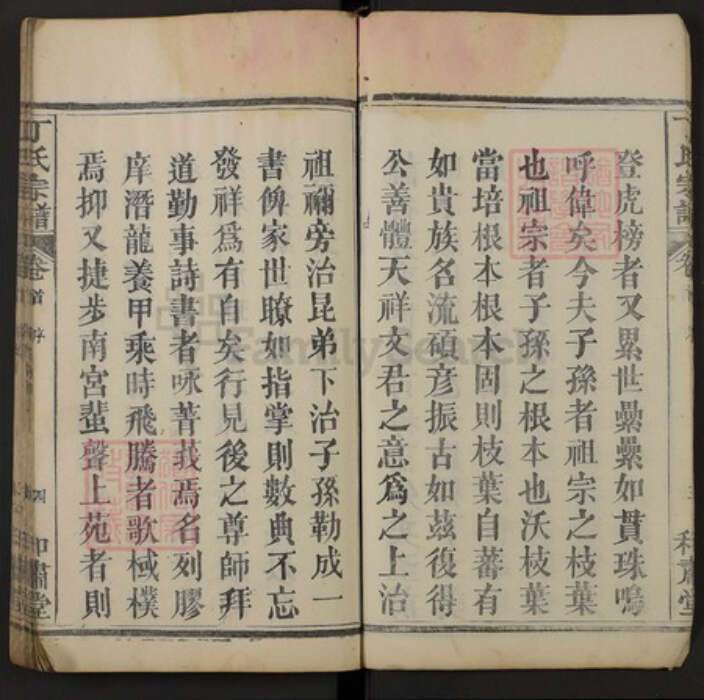 登虎榜者又累世纍纍如貫珠嗚
呼偉矣今夫子孫者祖宗之枝葉
也祖宗者子孫之根本也沃枝葉
當培根本根本固則枝葉自蕃有
如貴族名流碩彥振古如兹復得
公善體天祥文君之意爲之上治
祖禰旁治昆弟下治子孫勒成一
書俾家世瞭如指掌則數典不忘
發祥爲有自矣行見後之尊師拜
道勤事詩書者咏菁莪焉名列膠
庠潛龍養甲乘時飛騰者歌棫樸
焉抑又捷步南宮蜚聲上苑者則
丁氏宗譜
卷首
序
四
肅堂
FamilySearch